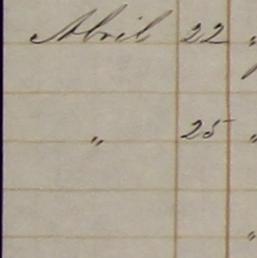 Abril 22 "
" 25 "
"